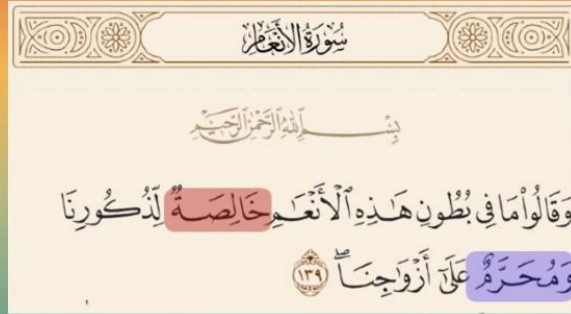 سُورَةُ الأَنْعَامِ
بِسْمِ اللَّهِ الرَّحْمَٰنِ الرَّحِيمِ
وَقَالُوا۟ مَا فِى بُطُونِ هَـٰذِهِ ٱلْأَنْعَـٰمِ خَالِصَةٌ لِّذُكُورِنَا
وَمُحَرَّمٌ عَلَىٰٓ أَزْوَٰجِنَا ۖ ١٣٩